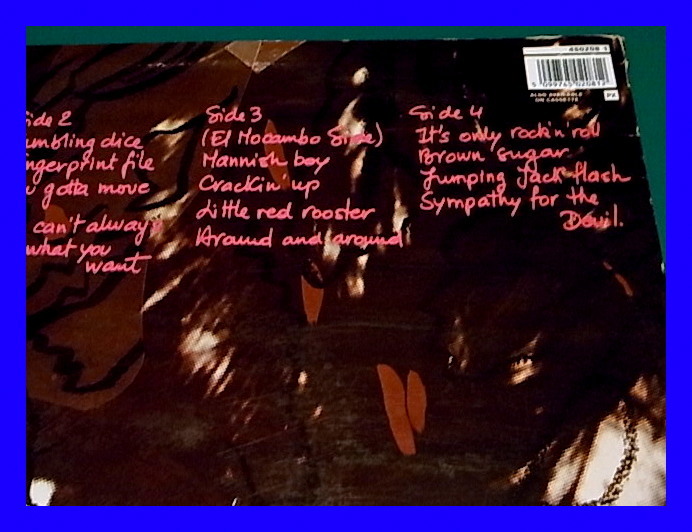 ide 2
umbling dice
ngerprint file
u gotta move
can't always
what you
want
Side 3
(El Mocambo Side)
Mannish boy
Crackin' up
Little red rooster
Around and around
Side 4
It's only rock'n'roll
Brown sugar
Jumping Jack flash
Sympathy for the
Devil.
450208 1
5 099765 020812
ALSO AVAILABLE
ON CASSETTE